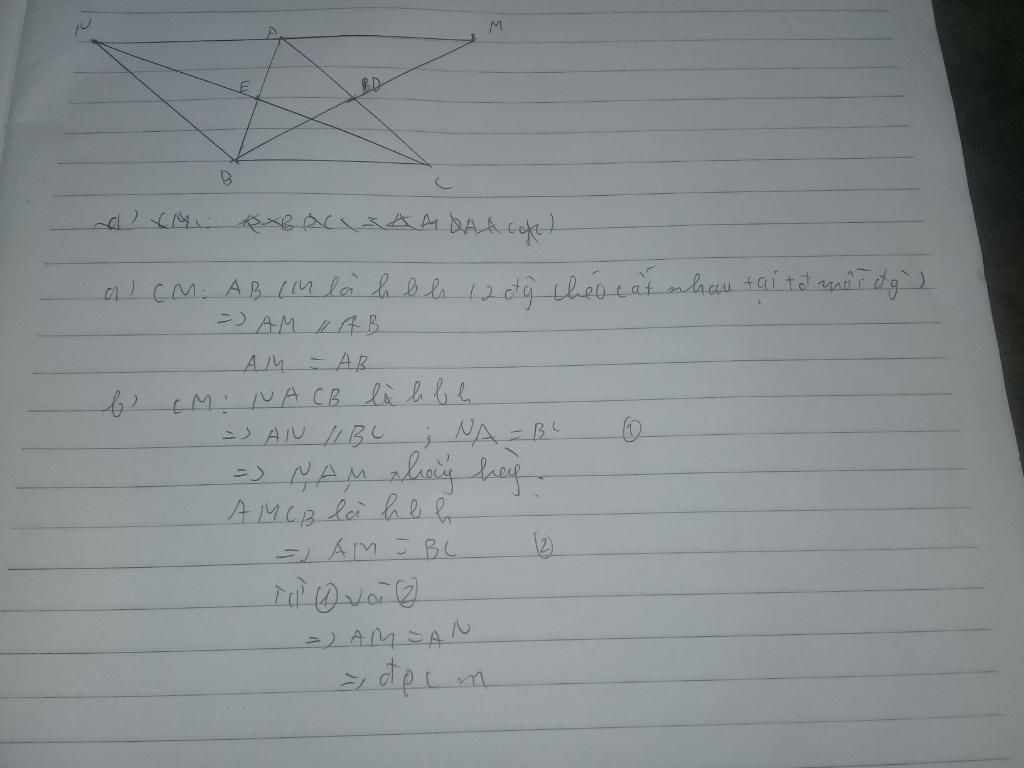 N A M
E D
B C
a) CM:
a) CM: ABCM là hbh (2 đg chéo cắt nhau tại tđ mỗi đg)
=> AM // AB
AM = AB
b) CM: NACB là hbh
=> AN // BC ; NA = BC ①
=> N, A, M thẳng hàng.
AMCB là hbh
=> AM = BC ②
Từ ① và ②
=> AM = AN
=> đpcm